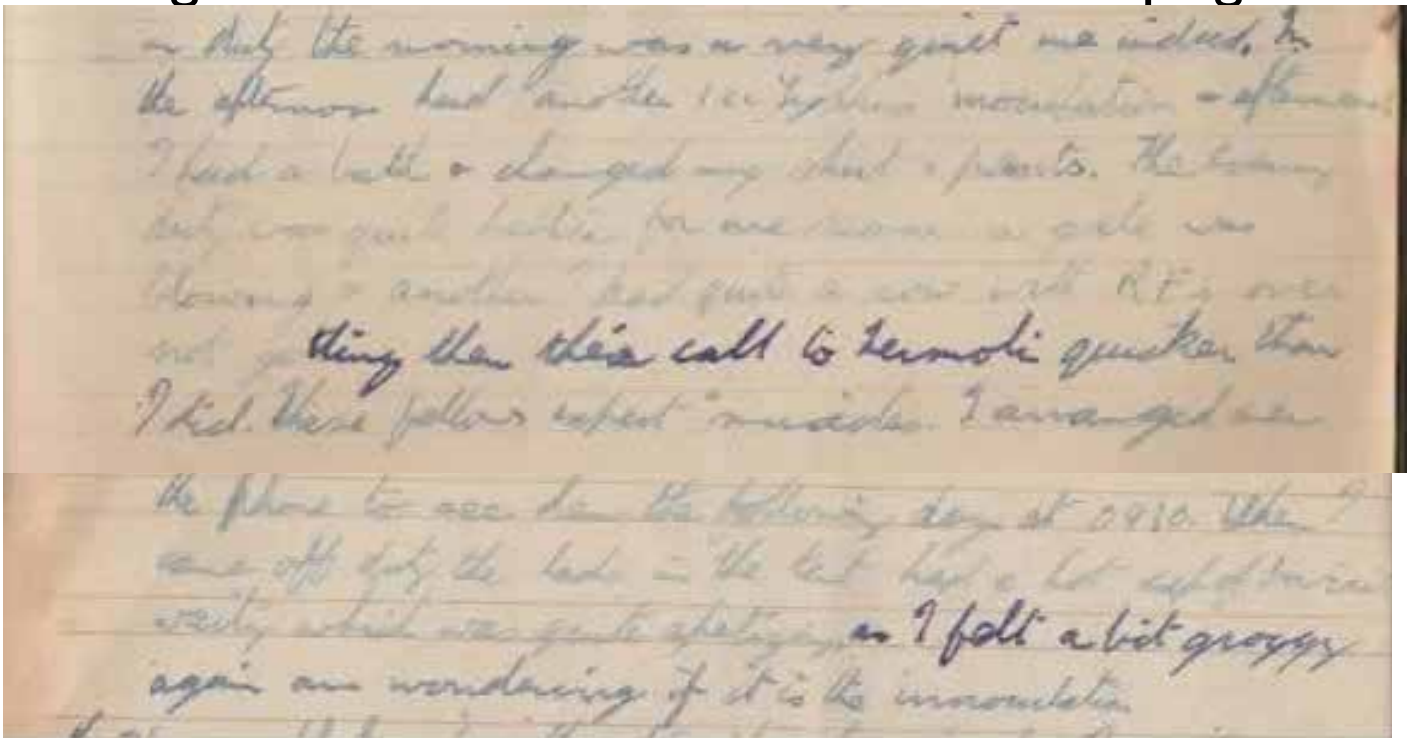 on duty the morning was a very quiet one indeed. In
the afternoon had another 1cc Typhus inoculation & afterwards
I had a bath & changed my shirt & pants. The evening
duty was quite hectic for one reason a gale was
blowing & another had quite a row with R.E.s over
not getting them their call to Termoli quicker than
I did. These fellows expect miracles. I arranged over
the phone to see him the following day at 0930. When I
came off duty the lads in the tent had a hot cup of
waiting which was quite as I felt a bit groggy
again am wondering if it is the innoculation